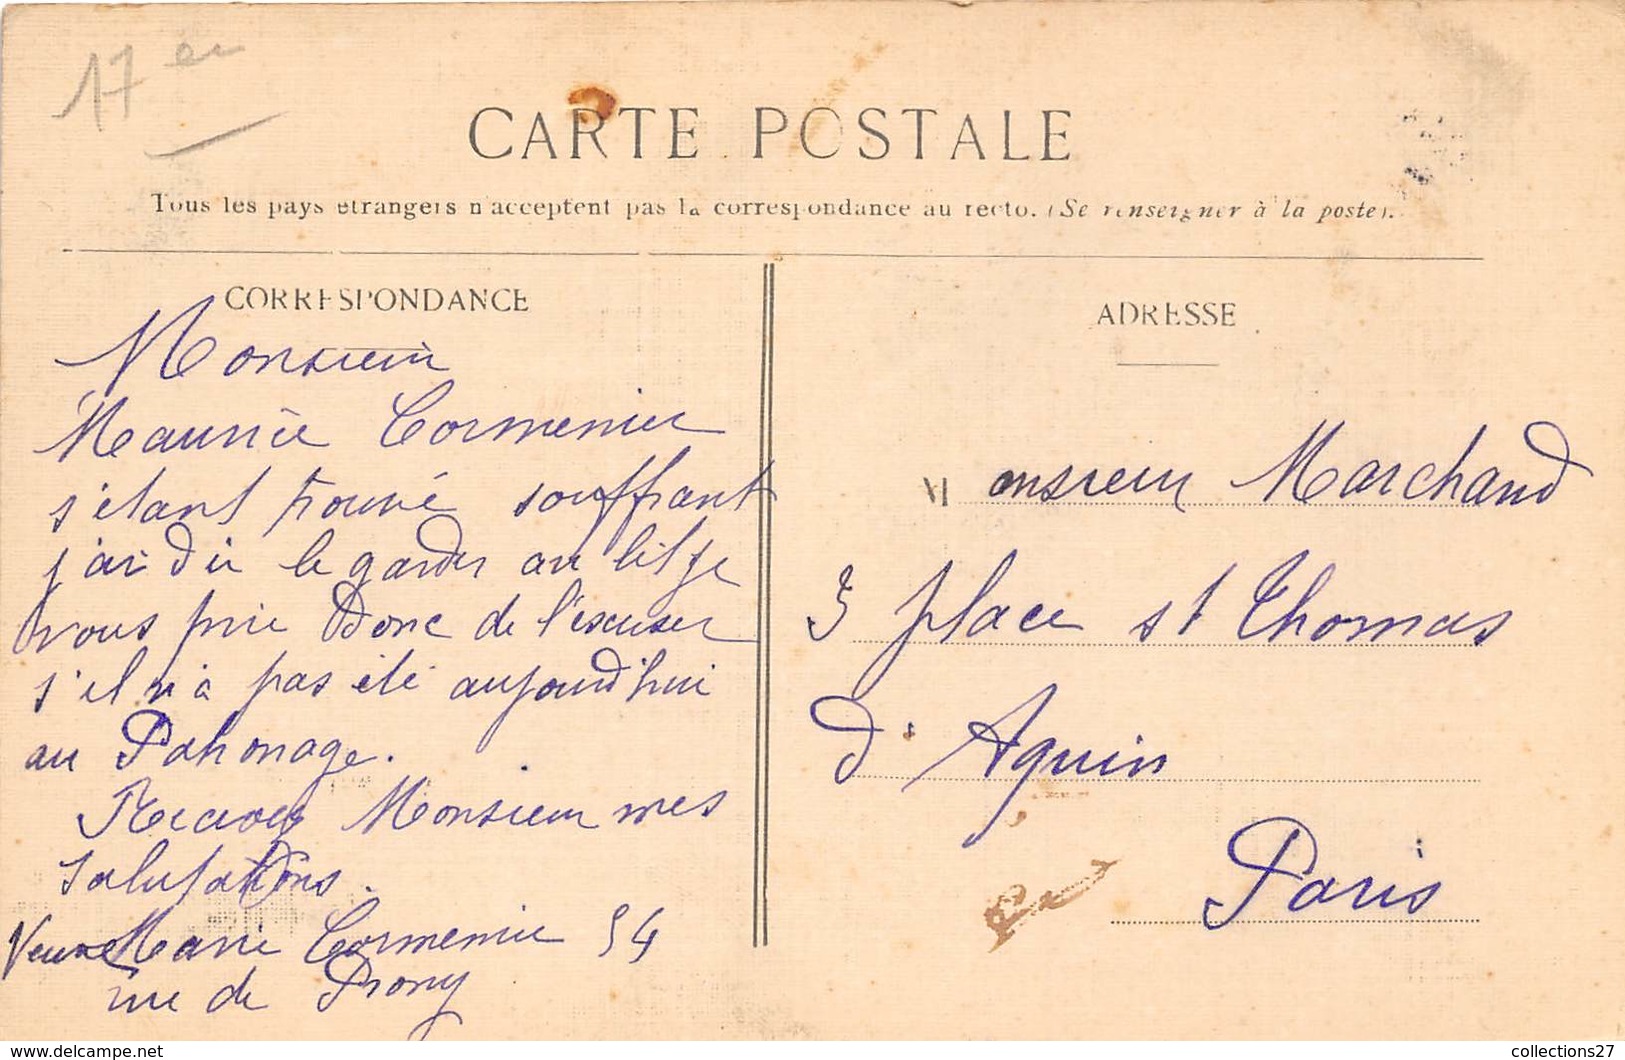 17 en
CARTE POSTALE
Tous les pays étrangers n'acceptent pas la correspondance au recto. (Se renseigner à la poste).
CORRESPONDANCE
Monsieur
Maurice Cormenier
s'etant trouvé souffrant
j'ai du le garder au lit je
vous prie donc de l'escuser
s'il n'a pas été aujourd'hui
au Patronage.
Recevez Monsieur mes
salutations.
Veuve Marie Cormenier 54
rue de Prony
ADRESSE
Monsieur Marchand
3 place st Thomas
d'Aquin
Paris
delcampe.net
collections27